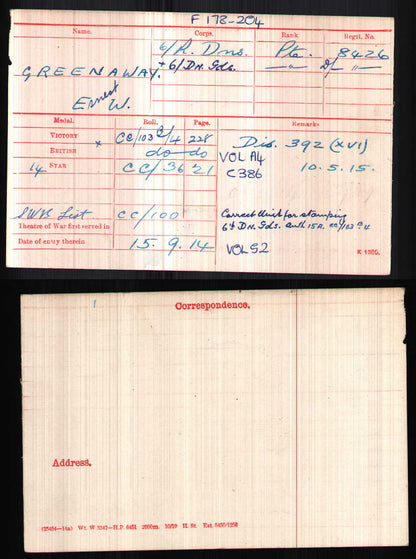 F 178-204
Name. Corps. Rank Regtl. No.
6/R. Dns. Pte. 8426
GREENAWAY. + 6/Dn. Gds. —"— D/ —"—
Ernest W.
Medal. Roll. Page. Remarks
VICTORY x CC/103 C/4 228 Dis. 392 (XVI)
BRITISH do do VOL A4 10.5.15.
14 STAR CC/36 21 C386
SWB List CC/100 Correct Unit for stamping
Theatre of War first served in 6th DN. Gds. auth 15A. CC/103 C4
Date of entry therein 15.9.14 VOL 92
K 1380.
1
Correspondence.
Address.